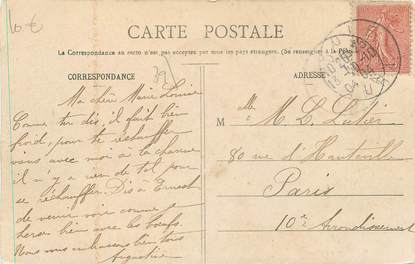 10 €
CARTE POSTALE
La Correspondance au recto n'est pas acceptée par tous les pays étrangers. (Se renseigner à la Poste)
CORRESPONDANCE
ADRESSE
Ma chère Marie Louise
Comme tu dis, il fait bien
froid, pour te réchauffer
viens avec moi à la charrue
il n'y a rien de tel pour
se réchauffer. Dis à Ernest
de venir voir comme
herser bien avec les bœufs.
Nous vous embrassons bien tous
Augustine
Melle M. L.
80 rue d'Hauteville
Paris
10e Arrondissement